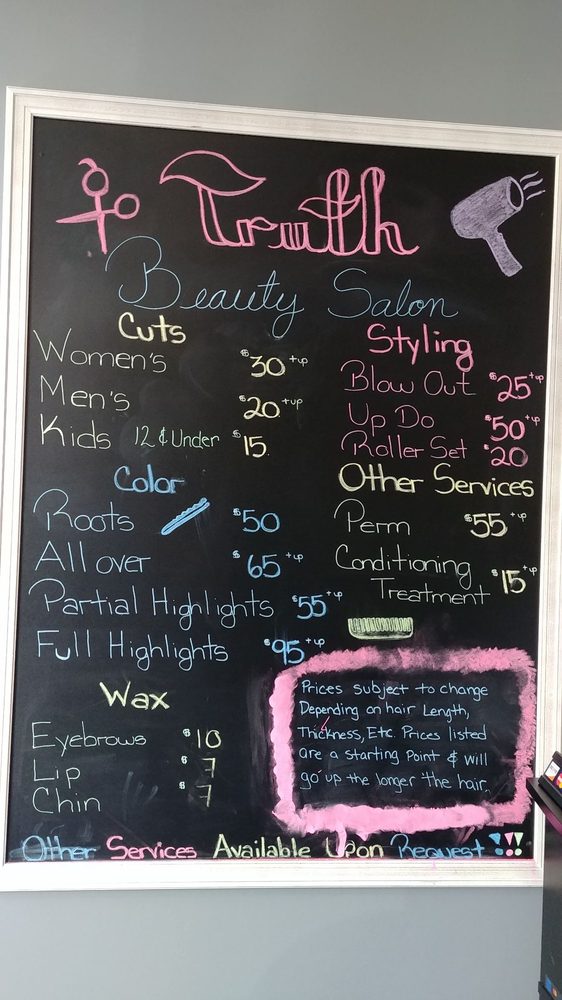 Truth
Beauty Salon
Cuts
Women's $30 + up
Men's $20 + up
Kids 12 & Under $15
Color
Roots $50
All over $65 + up
Partial Highlights $55 + up
Full Highlights $95 + up
Wax
Eyebrows $10
Lip $7
Chin $7
Styling
Blow Out $25 + up
Up Do $50 + up
Roller Set $20
Other Services
Perm $55 + up
Conditioning
Treatment $15 + up
Prices subject to change
Depending on hair Length,
Thickness, Etc. Prices listed
are a starting Point & will
go up the longer the hair.
Other Services Available Upon Request!!!